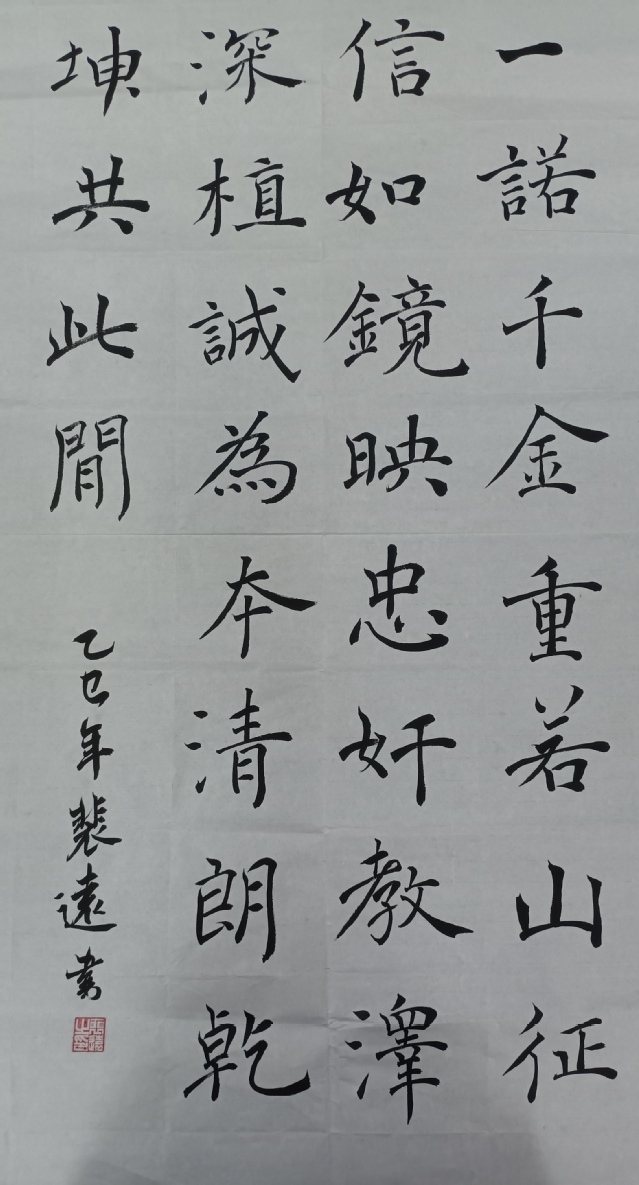 一諾千金重若山征
信如鏡映忠奸教澤
深植誠為本清朗乾
坤共此間
乙巳年裴遠書